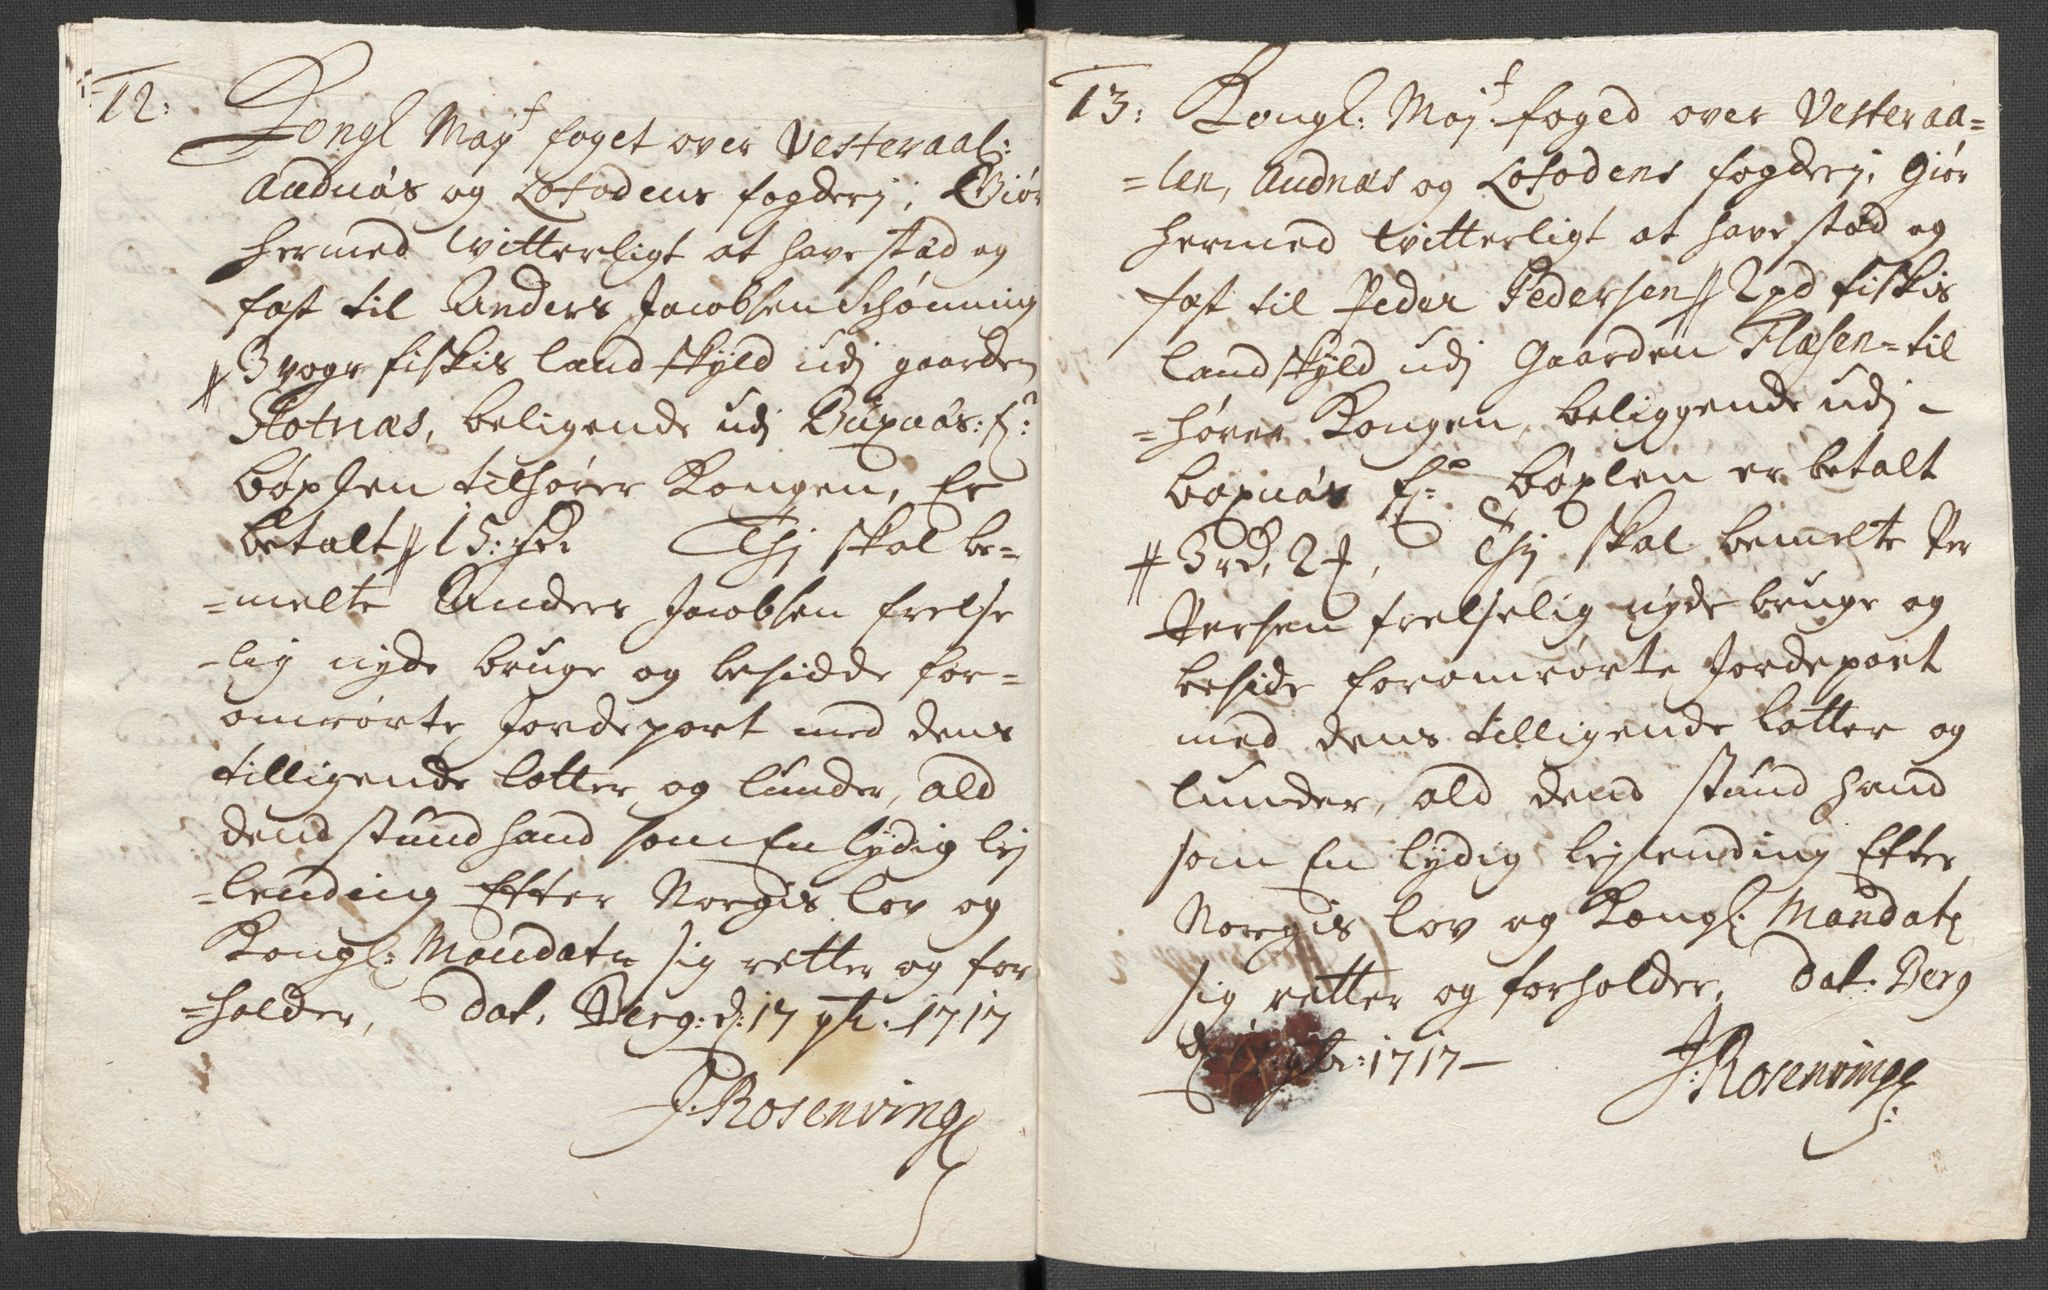 12:
Kongl May.t foget over Vesteraal:
Andnæs og Lofodens fogderj; Giør
hermed Vitterligt at have stæd og
fæst til Anders Jacobsen Schønning
# 3 voger fiskis land skyld udj gaarden
beligende udj Buxnæs: f:
böxlen tilhører Kongen, Er
betalt # 15: Thj skal be-
=melte Anders Jacobsen frelse
-lig nyde bruge og besidde for-
omrørte Jordepart med dens
tilligende lotter og lunder, ald
dend stund hand som En lydig lej
-lending Efter Norgis lov og
Kongl: Mandater sig retter og for
=holder, Dat. Berg: d: 17 1717
J: Rosenvinge
13:
Kongl: May.t foged over Vesteraa-
=len, Andnæs og Lofodens fogderj, Giør
hermed Vitterligt at have stæd og
fæst til Peder Pedersen # 2 pd fiskis
land skyld udj Gaarden Flæsen - til
=hører Kongen, beliggende udj -
Boxnæs f: böxlen er betalt
# 3 rd, 2 Thj skal bemelte Per
Persen frelselig nyde bruge og
beside foromrørte Jordepart
med dens tilligende lotter og
lunder, ald dend stund hand
som En lydig lejlending Efter
Norgis lov og Kongl: Mandater
sig retter og forholder, Dat. Berg
1717 -
J: Rosenvinge